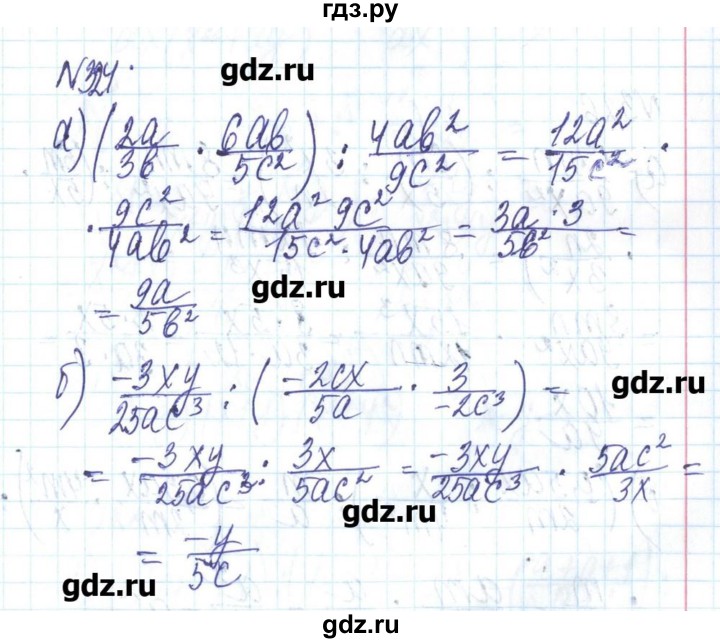 гдз.ру
№324.
gdz.ru
а) (2a/3b · 6ab/5c²) : 4ab²/9c² = 12a²/15c² ·
· 9c²/4ab² = 12a² 9c²/15c²·4ab² = 3a·3/5b² =
gdz.ru
= 9a/5b²
б) -3xy/25ac³ : (-2cx/5a · 3/-2c³) =
gdz.ru
= -3xy/25ac³ : 3x/5ac² = -3xy/25ac³ · 5ac²/3x =
gdz.ru
= -y/5c
gdz.ru
gdz.ru
гдз.ру